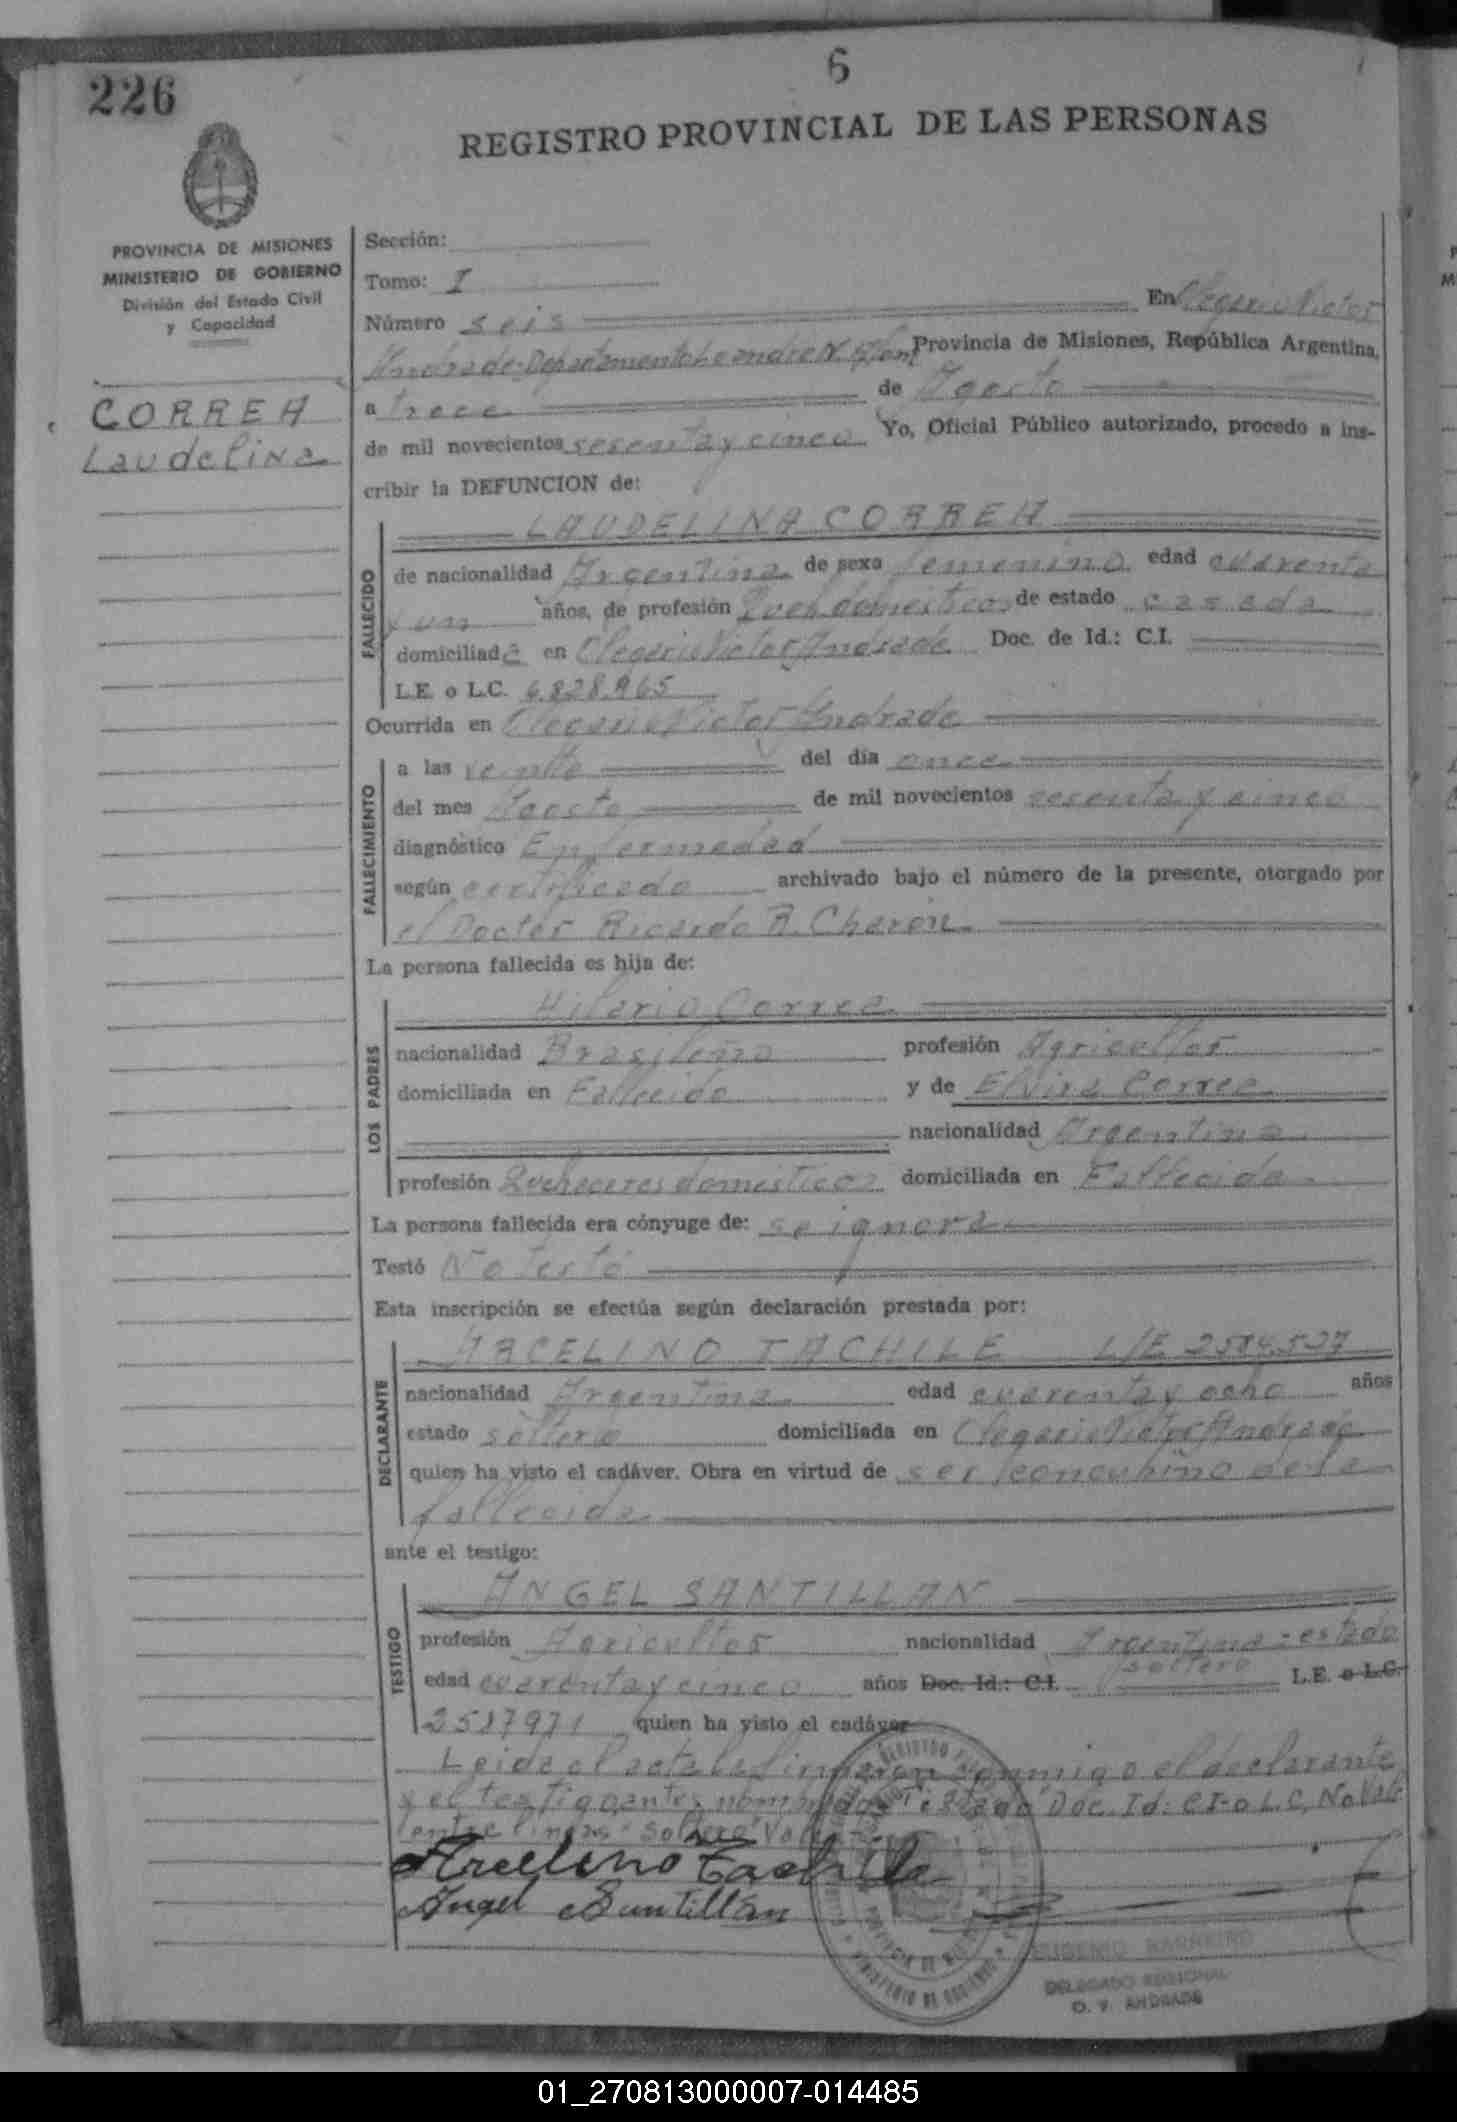 226
6
REGISTRO PROVINCIAL DE LAS PERSONAS
PROVINCIA DE MISIONES
MINISTERIO DE GOBIERNO
División del Estado Civil
y Capacidad
CORREA
Laudelina
Sección:
Tomo: I
Número seis En Olegario Victor
Andrade-Departamento Leandro N. Alem Provincia de Misiones, República Argentina,
a trece de Agosto
de mil novecientos sesenta y cinco Yo, Oficial Público autorizado, procedo a ins-
cribir la DEFUNCION de:
FALLECIDO
LAUDELINA CORREA
de nacionalidad Argentina de sexo femenino edad cuarenta
y un años, de profesión Queh domésticos de estado casada
domiciliada en Olegario Victor Andrade Doc. de Id.: C.I.
L.E. o L.C. 6.828.965
Ocurrida en Olegario Victor Andrade
FALLECIMIENTO
a las veinte del día once
del mes Agosto de mil novecientos sesenta y cinco
diagnóstico Enfermedad
según certificado archivado bajo el número de la presente, otorgado por
el Doctor Ricardo R. Charón
La persona fallecida es hija de:
LOS PADRES
Hilario Correa
nacionalidad Brasileña profesión Agricultor
domiciliada en Fallecido y de Elvira Correa
nacionalidad Argentina
profesión Quehaceres domésticos domiciliada en Fallecida
La persona fallecida era cónyuge de: se ignora
Testó No testó
Esta inscripción se efectúa según declaración prestada por:
DECLARANTE
ARCELINO TACHILE L/E 2584.527
nacionalidad Argentina edad cuarenta y ocho años
estado soltero domiciliada en Olegario Victor Andrade
quien ha visto el cadáver. Obra en virtud de ser concubino de la
fallecida
ante el testigo:
TESTIGO
ANGEL SANTILLAN
profesión Agricultor nacionalidad Argentina-estado
soltero
edad cuarenta y cinco años Doc. Id.: C.I. L.E. o L.C.
2587971 quien ha visto el cadáver
Leida el acta la firmaron conmigo el declarante
y el testigo antes nombrados Testado "Doc. Id: CI-o L.C, No Vale
entre lineas "soltero" Vale
Arcelino Tachile
Angel Santillán
EUGENIO BARREIRO
DELEGADO REGIONAL
O. V. ANDRADE
01_270813000007-014485